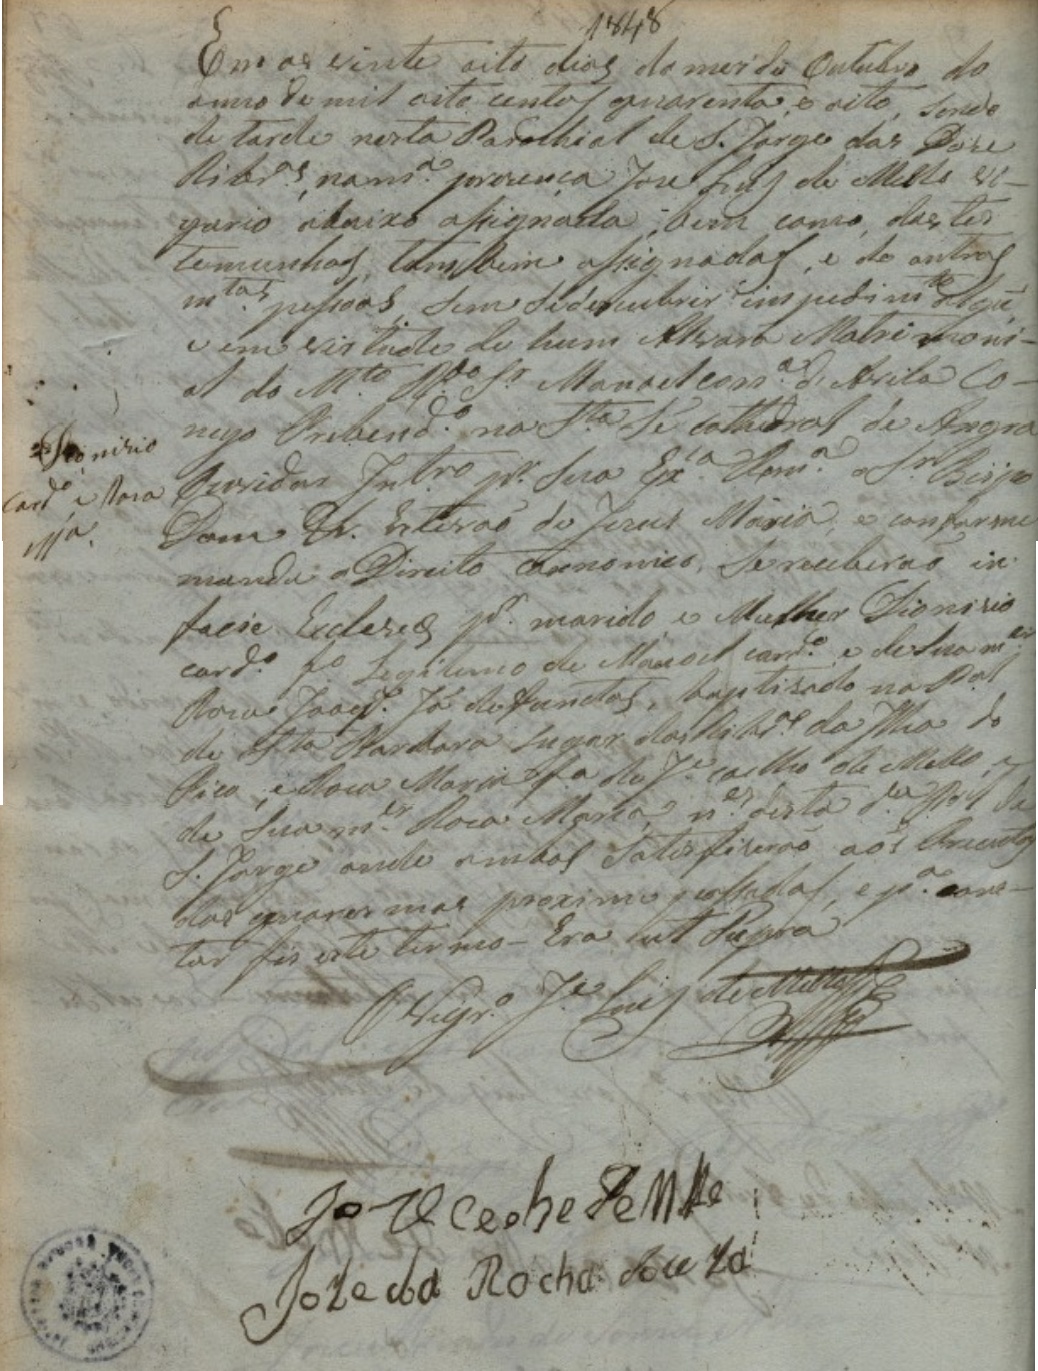 1848
Em os vinte oito dias do mes de Outubro do
anno de mil oito centos quarenta e oito, sendo
de tarde nesta Parochial de S. Jorge das Doze
Ribr.as, na m.a prezença Joze Luis de Mello Vi-
gario abaixo assignado, bem como das tes
temunhas, tambem assignadas, e de outras
m.tas pessoas, sem se descubrir impedim.to algũ,
e em virtude de hum Alvara Matrimoni-
al do M.to R.do Sr Manoel Corr.a d'Avila Co-
nego Prebend.o na S.ta Sé Cathedral de Angra
Provizor Int.ro pr. Sua Ex.cia Rem.a o Sr. Bispo
Dom Fr. Estevaõ de Jezus Maria, e conforme
manda o Direito Cannonico, se receberaõ in
facie Ecclesiæ pr. marido e Mulher Dionizio
Card.o f.o Legitimo de Manoel Card.o e de sua m.er
Roza Joaq.a Já defuntos, baptisado na P.al
de S.ta Barbara Lugar das Ribr.as da Ilha do
Pico, e Roza Maria f.a de J.e Coelho de Mello, e
de sua m.er Roza Maria, n.es desta d.a P.al de
S. Jorge onde ambos satisfizeraõ aos Preceitos
das quaresmas proximo passadas, e p.a cons-
tar fis este termo - Era ut Supra
O Vigr.o J.e Luis de Mello
Dionizio
Card.o e Roza
M.a
Joze da Rocha Souza